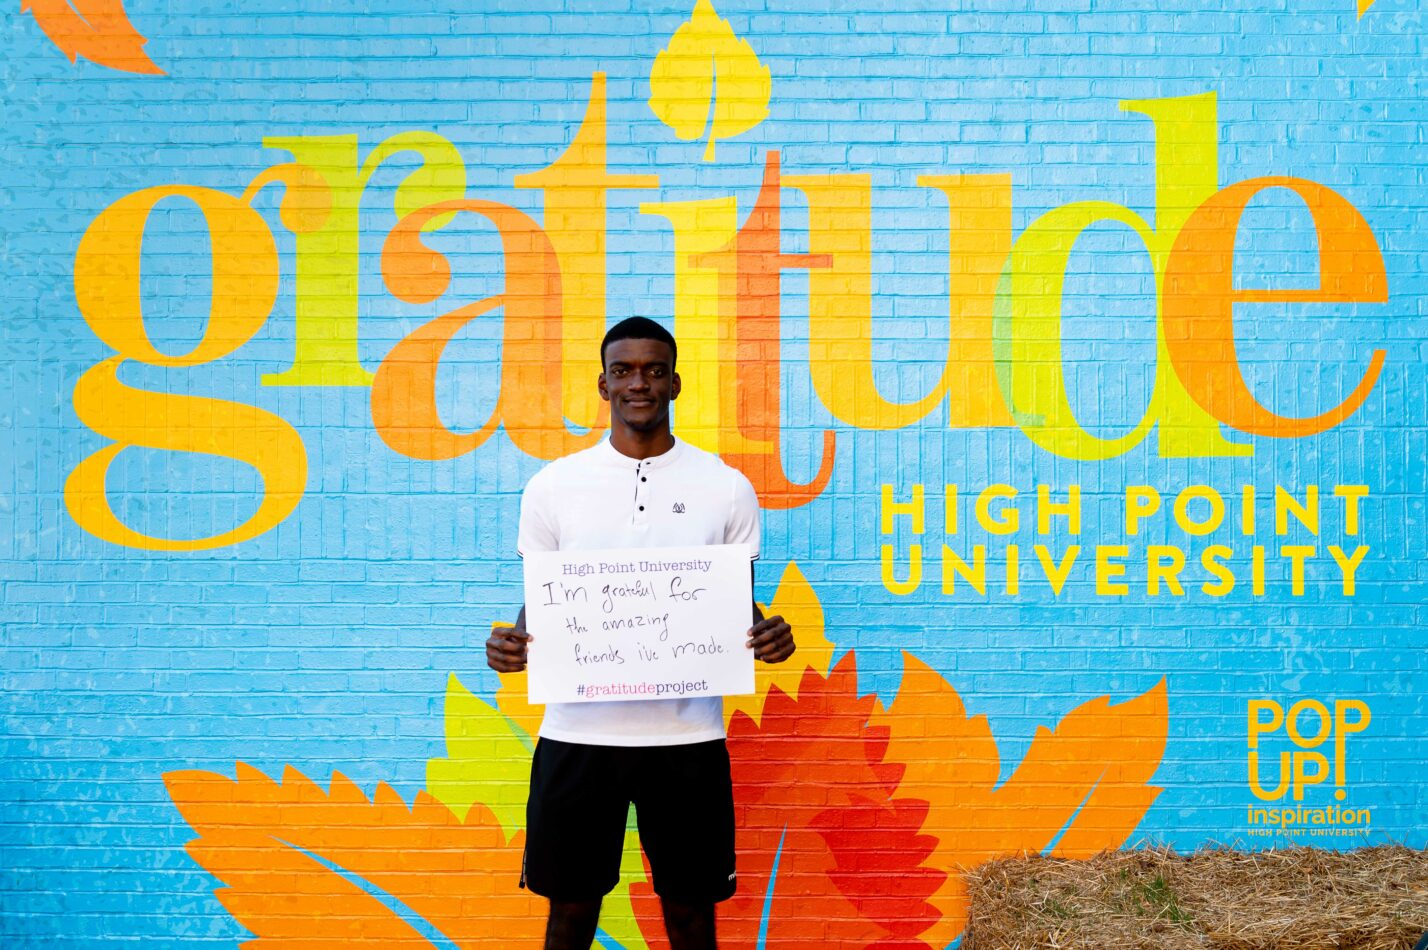 gratitude
HIGH POINT
UNIVERSITY
High Point University
I'm grateful for
the amazing
friends i've made.
#gratitudeproject
POP
UP!
inspiration
HIGH POINT UNIVERSITY